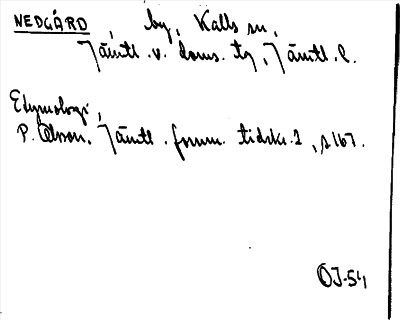 NEDGÅRD, by, Kalls sn,
Jämtl. v. doms. tg, Jämtl. l.
Etymologi,
P. Olsson. Jämtl. fornm. tidskr. 2, s 167.
OJ-54